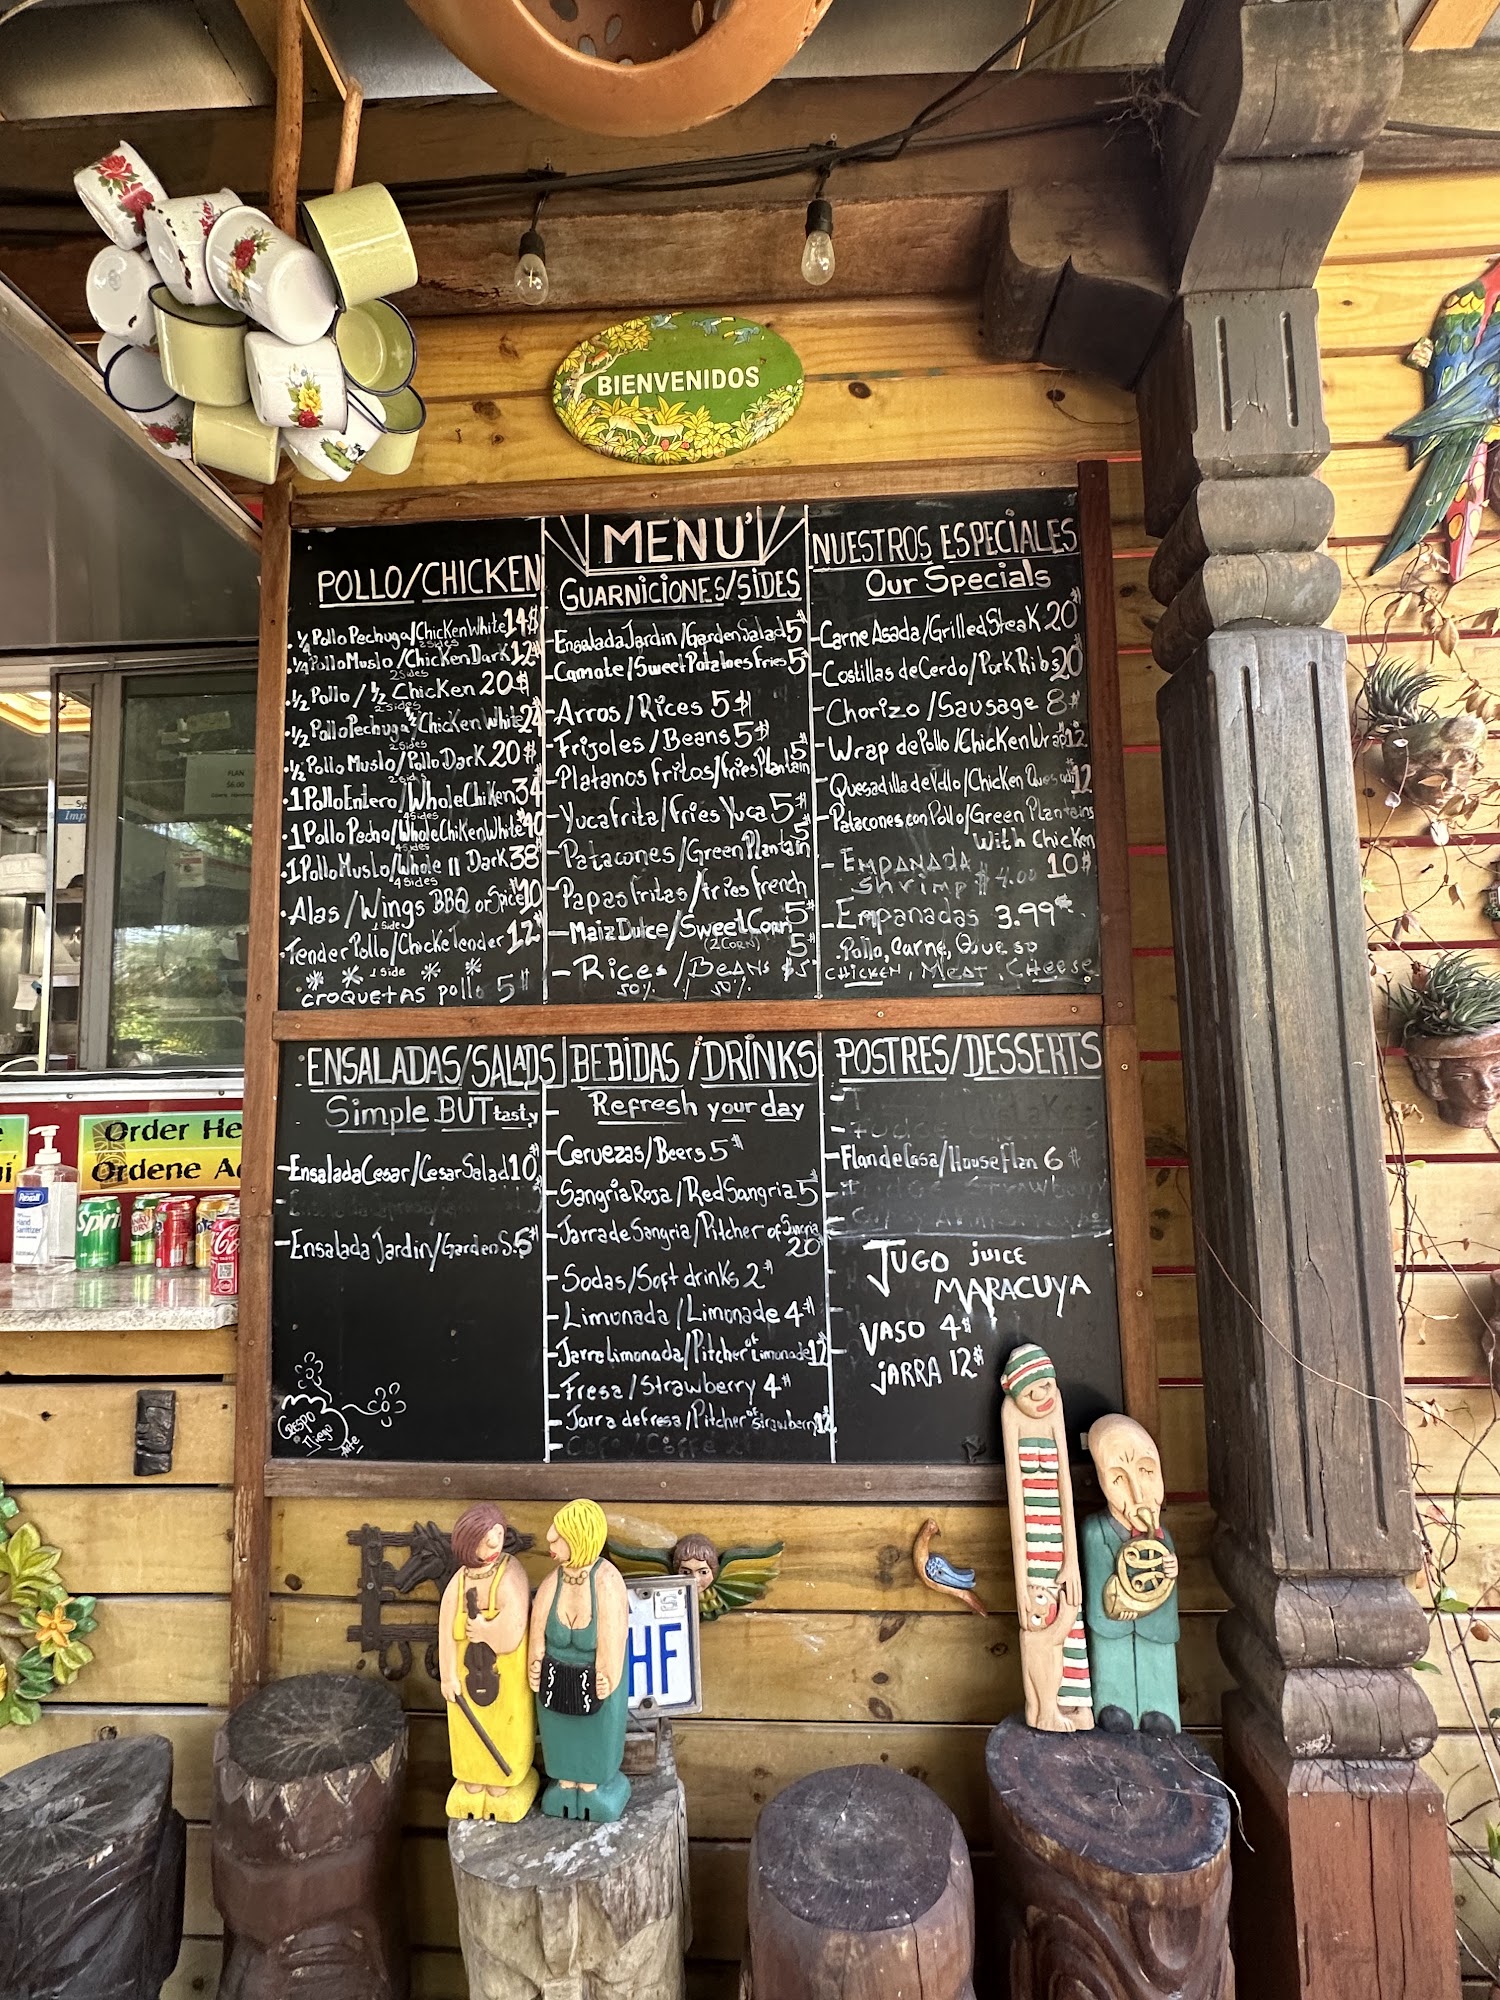 BIENVENIDOS
MENU'
POLLO/CHICKEN
·¼ Pollo Pechuga/Chicken White 14$
2 Sides
·¼ Pollo Muslo/Chicken Dark 12$
2 Sides
·½ Pollo/½ Chicken 20$
2 sides
·½ Pollo Pechuga/½ Chicken White 24
2 Sides
·½ Pollo Muslo/Pollo Dark 20$
2 Sides
·1 Pollo Entero/Whole Chiken 34
4 Sides
·1 Pollo Pecho/Whole Chiken White 40
4 Sides
·1 Pollo Muslo/Whole 11 Dark 38
4 Sides
·Alas/Wings BBQ or Spice 10
1 Side
·Tender Pollo/Chicke Tender 12$
1 Side
croquetas pollo 5$
GUARNICIONES/SIDES
-Ensalada Jardin/Garden Salad 5$
-Camote/Sweet Potatoes Fries 5$
-Arros/Rices 5$
-Frijoles/Beans 5$
-Platanos Fritos/Fries Plantain 5$
-Yuca Frita/Fries Yuca 5$
-Patacones/Green Plantain 5$
-Papas Fritas/Fries French 5$
-Maiz Dulce/Sweet Corn 5$
(2 CORN)
-Rices/BeANs $5
50% / 50%
NUESTROS ESPECIALES
Our Specials
-Carne Asada/Grilled Steak 20$
-Costillas de Cerdo/Pork Ribs 20
-Chorizo/Sausage 8$
-Wrap de Pollo/Chicken Wrap 12
-Quesadilla de Pollo/Chicken Quesadi 12
-Patacones con Pollo/Green Plantains
With Chicken
10$
-EMPANADA
Shrimp $4.00
-Empanadas 3.99
.Pollo, Carne, Queso
CHICKEN, MEAT, CHEESE
ENSALADAS/SALADS
Simple BUT tasty
-Ensalada Cesar/Cesar Salad 10$
-Ensalada Jardin/Garden S. 5$
CRESPO
Diego
Arte
BEBIDAS/DRINKS
Refresh your day
-Cervezas/Beers 5$
-Sangria Rosa/Red Sangria 5$
-Jarra de Sangria/Pitcher of Sangria 20$
-Sodas/Soft drinks 2$
-Limonada/Limonade 4$
-Jarra Limonada/Pitcher of Limonade 12$
-Fresa/Strawberry 4$
-Jarra de Fresa/Pitcher of Strawberry 12$
-Cafe/Coffe 2
POSTRES/DESSERTS
-Flan de Casa/House Flan 6$
JUGO juice
MARACUYA
VASO 4$
jARRA 12$
FLAN
$6.00
Order He
Ordene A
Hand
Sanitizer
Spri
Co
HF